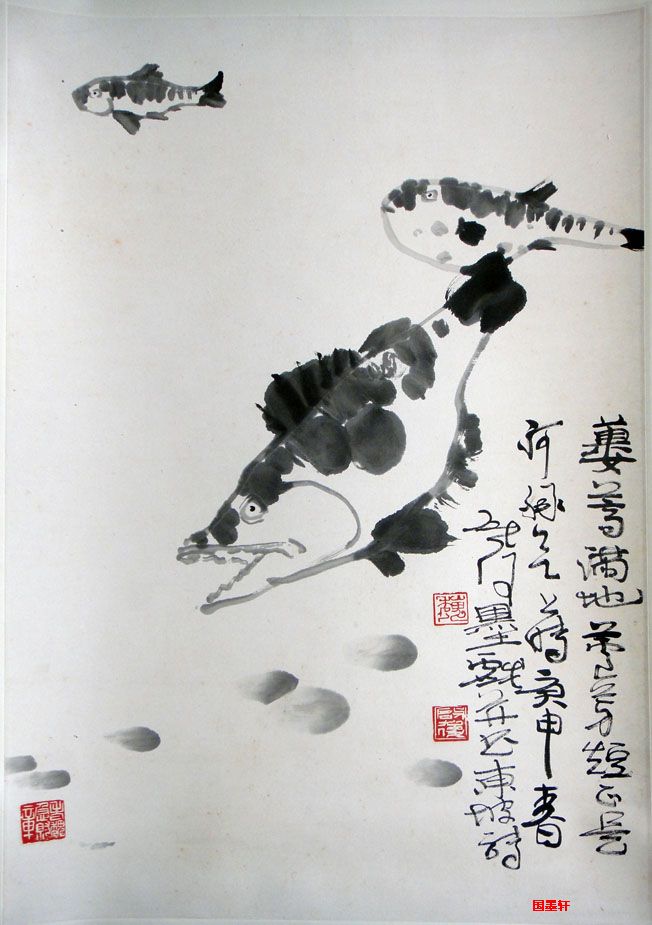 蔞蒿滿地蘆芽短正是
河豚欲上時庚申春
門墨戲并東坡詩
国墨轩